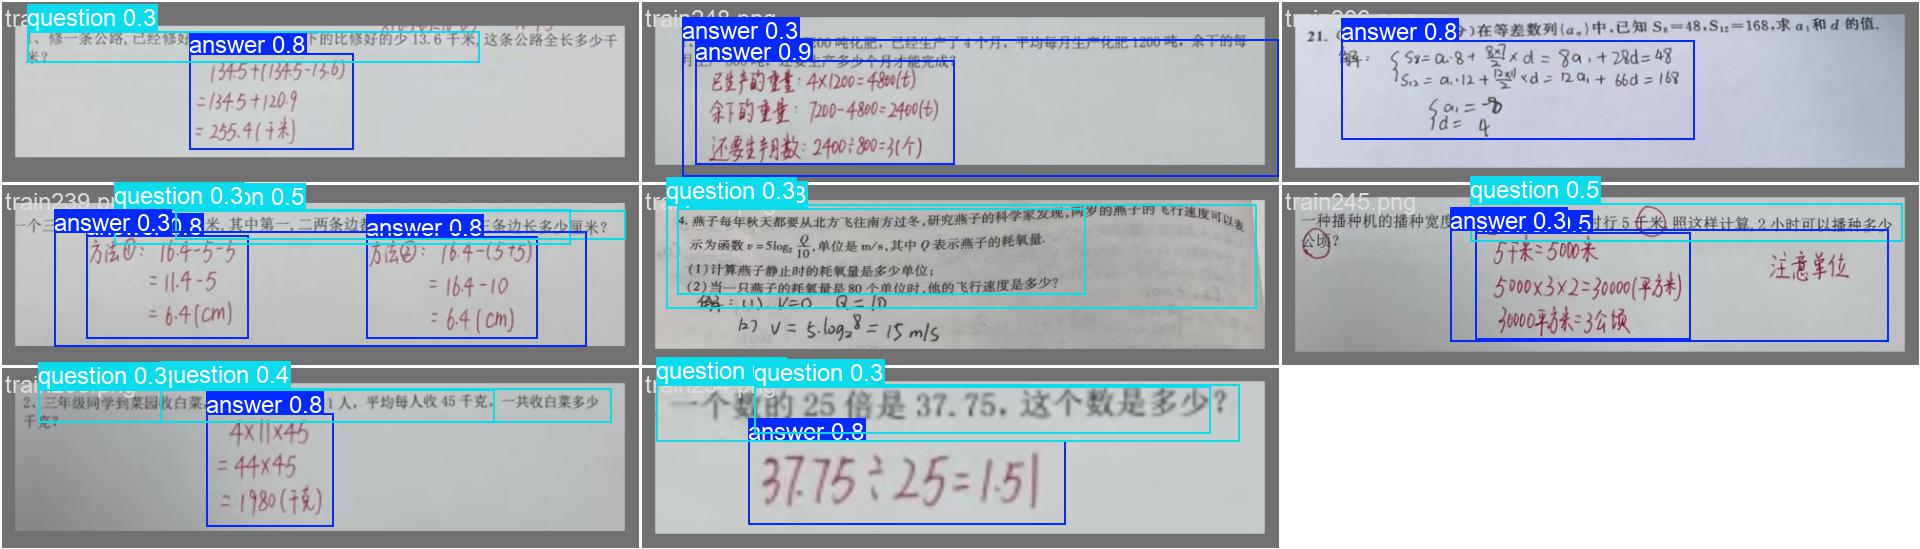 question 0.3
1、修一条公路,已经修好
下的比修好的少 13.6 千米,这条公路全长多少千
米?
answer 0.8
134.5+(134.5-13.6)
=134.5+120.9
=255.4(千米)
train248.png
answer 0.3
answer 0.9
200 吨化肥，已经生产了 4 个月，平均每月生产化肥 1200 吨，余下的每
已生产的重量：4×1200=4800(t)
余下的重量：7200-4800=2400(t)
还要生产月数：2400÷800=3(个)
answer 0.8
21.
)在等差数列{aₙ}中,已知 S₈=48,S₁₂=168,求 a₁和 d 的值.
解：
S₈=a₁·8+8×7/2×d=8a₁+28d=48
S₁₂=a₁·12+12×11/2×d=12a₁+66d=168
a₁=-8
d=4
train239.png
question 0.3
on 0.5
answer 0.3
0.8
answer 0.8
一个三
米,其中第一,二两条边
三条边长多少厘米?
方法①：16.4-5-5
=11.4-5
=6.4(cm)
方法②：16.4-(5+5)
=16.4-10
=6.4(cm)
question 0.3
4.燕子每年秋天都要从北方飞往南方过冬,研究燕子的科学家发现,两岁的燕子的飞行速度可以表
示为函数 v=5log₂ Q/10,单位是 m/s,其中 Q 表示燕子的耗氧量.
(1)计算燕子静止时的耗氧量是多少单位;
(2)当一只燕子的耗氧量是 80 个单位时,他的飞行速度是多少?
解：(1) V=0 Q=10
(2) V=5·log₂8=15 m/s
train245.png
question 0.5
answer 0.3
.5
一种播种机的播种宽度
时行 5 千米,照这样计算,2 小时可以播种多少
公顷?
5千米=5000米
5000×3×2=30000(平方米)
30000平方米=3公顷
注意单位
question 0.3
question 0.4
answer 0.8
2、三年级同学到菜园收白菜
1 人，平均每人收 45 千克。一共收白菜多少
千克?
4×11×45
=44×45
=1980(千克)
question
question 0.3
一个数的 25 倍是 37.75，这个数是多少?
answer 0.8
37.75÷25=1.51